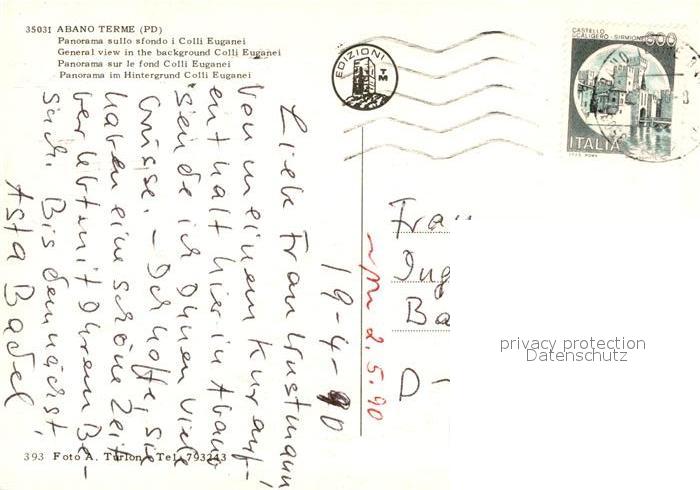 35031 ABANO TERME (PD)
Panorama sullo sfondo i Colli Euganei
General view in the background Colli Euganei
Panorama sur le fond Colli Euganei
Panorama im Hintergrund Colli Euganei
EDIZIONI
TM
CASTELLO
SCALIGERO - SIRMIONE
500
ITALIA
19-4-90
Liebe Frau
von meinem Kurauf-
enthalt hier in Abano
sende ich Ihnen viele
Grüsse. - Ich hoffe, sie
haben eine schöne Zeit
verlebt mit Ihrem Be-
such. Bis demnächst,
Asta Badel
2.5.90
Frau
Ing
Ba
D-
privacy protection
Datenschutz
393 Foto A. Turlon - Tel. 793243